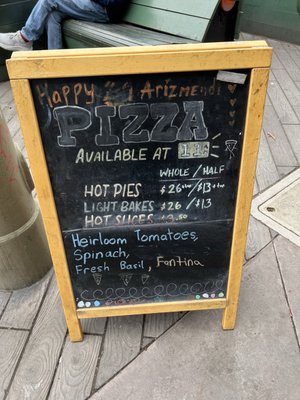 Happy Arizmendi
PIZZA
AVAILABLE AT 11
WHOLE / HALF
HOT PIES $26 / $13
LIGHT BAKES $26 / $13
HOT SLICES $3.50
Heirloom Tomatoes,
Spinach,
Fresh Basil, Fontina